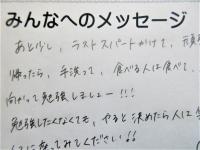 みんなへのメッセージ
あと少し、ラストスパートかけて、頑
帰ったら、手洗って、食べる人は食べて、
向かって勉強しましょー!!!
勉強したくなくても、やると決めたら人は
に座ってみてください!!